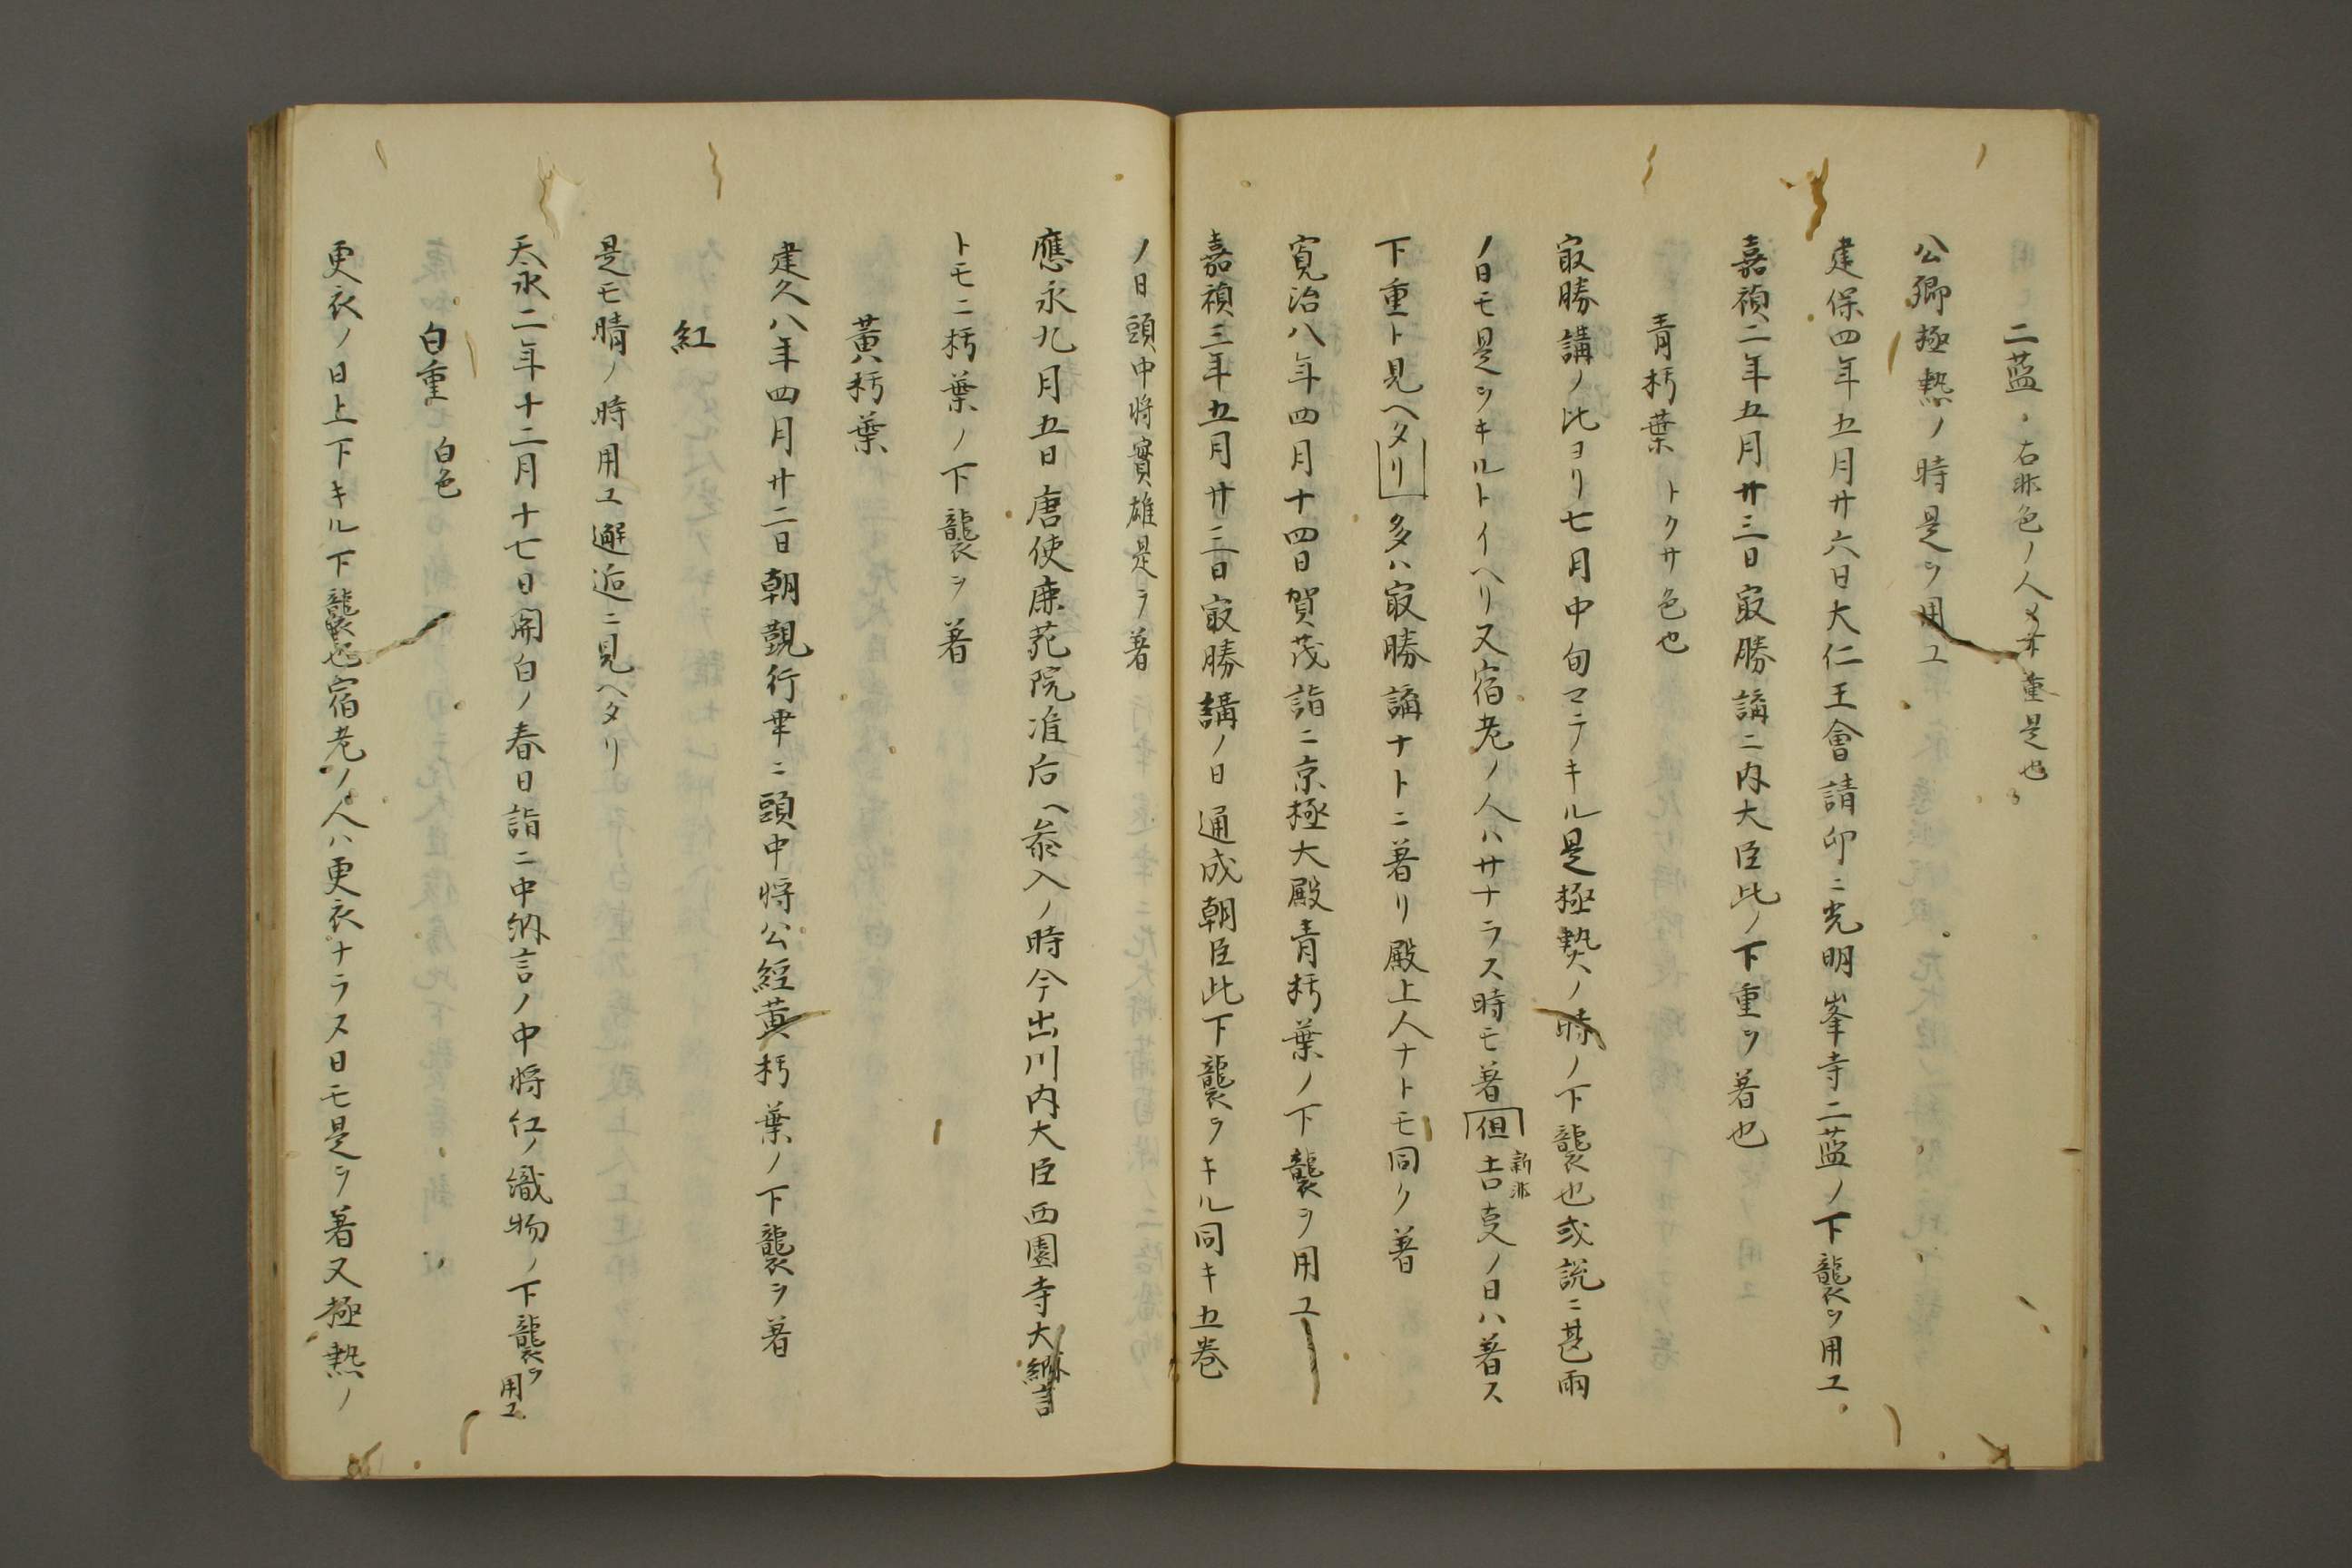 二藍 、右非色ノ人夏重是也
公卿極熱ノ時是ヲ用ユ
建保四年五月廿六日大仁王會請印ニ光明峯寺二藍ノ下襲ヲ用ユ
嘉禎二年五月廿三日㝡勝講ニ内大臣此ノ下重ヲ着也
青朽葉 トクサ色也
㝡勝講ノ比ヨリ七月中旬マテキル是極熱ノ時ノ下襲也或説ニ甚雨
ノ日モ是ヲキルトイヘリ又宿老ノ人ハサナラス時モ着但吉支ノ日ハ着ス
新非
下重ト見ヘタリ多ハ㝡勝講ナトニ着リ殿上人ナトモ同ク着
寛治八年四月十四日賀茂詣ニ京極大殿青朽葉ノ下襲ヲ用ユ
嘉禎三年五月廿三日㝡勝講ノ日通成朝臣此下襲ヲキル同キ五巻
ノ日頭中将實雄是ヲ着
應永九月五日唐使鹿苑院准后ヘ参入ノ時今出川内大臣西園寺大納言
トモニ朽葉ノ下襲ヲ着
黄朽葉
建久八年四月廿二日朝覲行幸ニ頭中将公経黄朽葉ノ下襲ヲ着
紅
是モ晴ノ時用ユ邂逅ニ見ヘタリ
天永二年十二月十七日関白ノ春日詣ニ中納言ノ中将紅ノ織物ノ下襲ヲ用ユ
白重 白色
更衣ノ日上下キル下襲也宿老ノ人ハ更衣ナラス日モ是ヲ着又極熱ノ